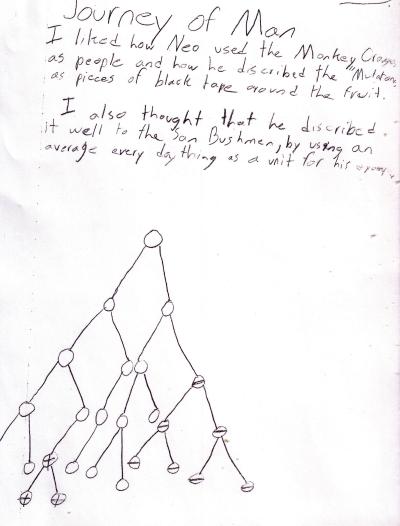 Journey of Man
I liked how Neo used the Monkey
as people and how he discribed the "Mutations
as pieces of black tape around the fruit.
I also thought that he discribed
it well to the San Bushmen, by using an
average every day thing as a unit for his